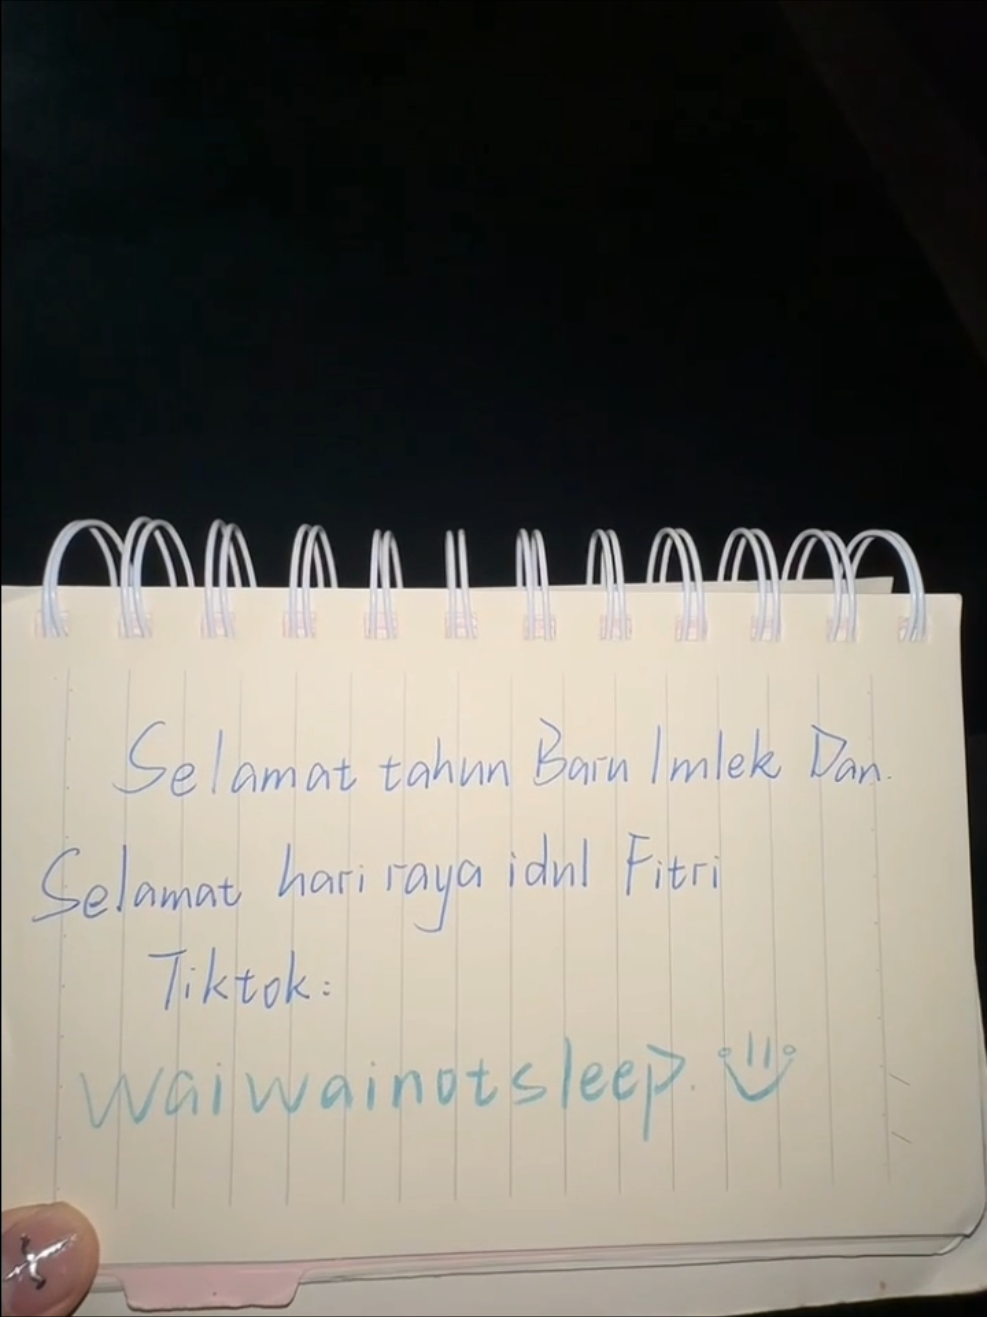 Selamat tahun Baru Imlek Dan.
Selamat hari raya idul Fitri
Tiktok:
waiwainotsleep.